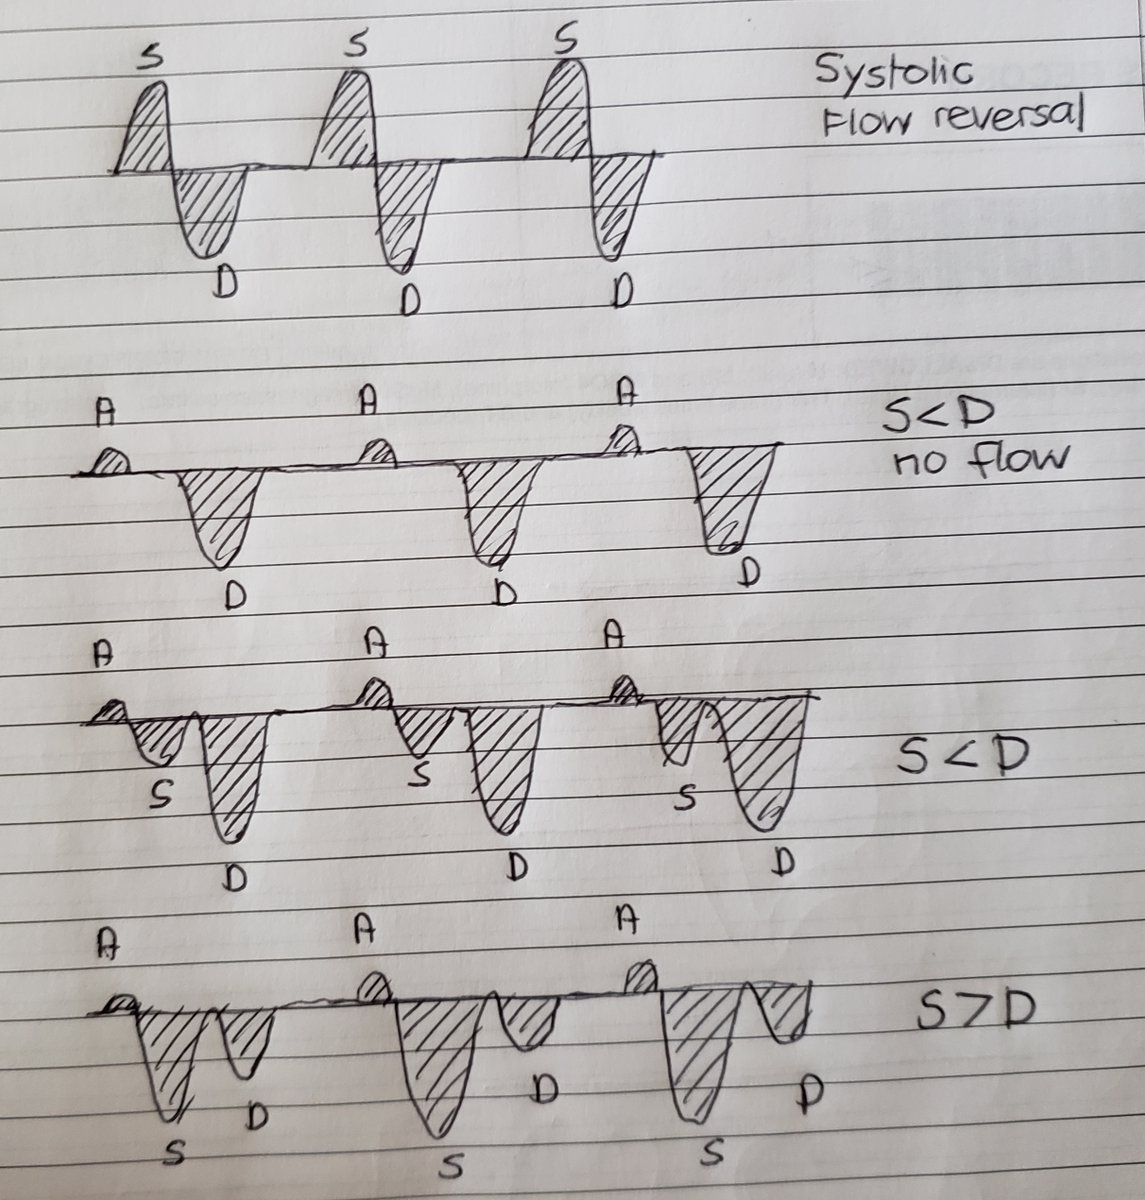 S S S
Systolic
Flow reversal
D D D
A A A
S<D
no flow
D D D
A A A
S<D
S S S
D D D
A A A
S>D
D D D
S S S